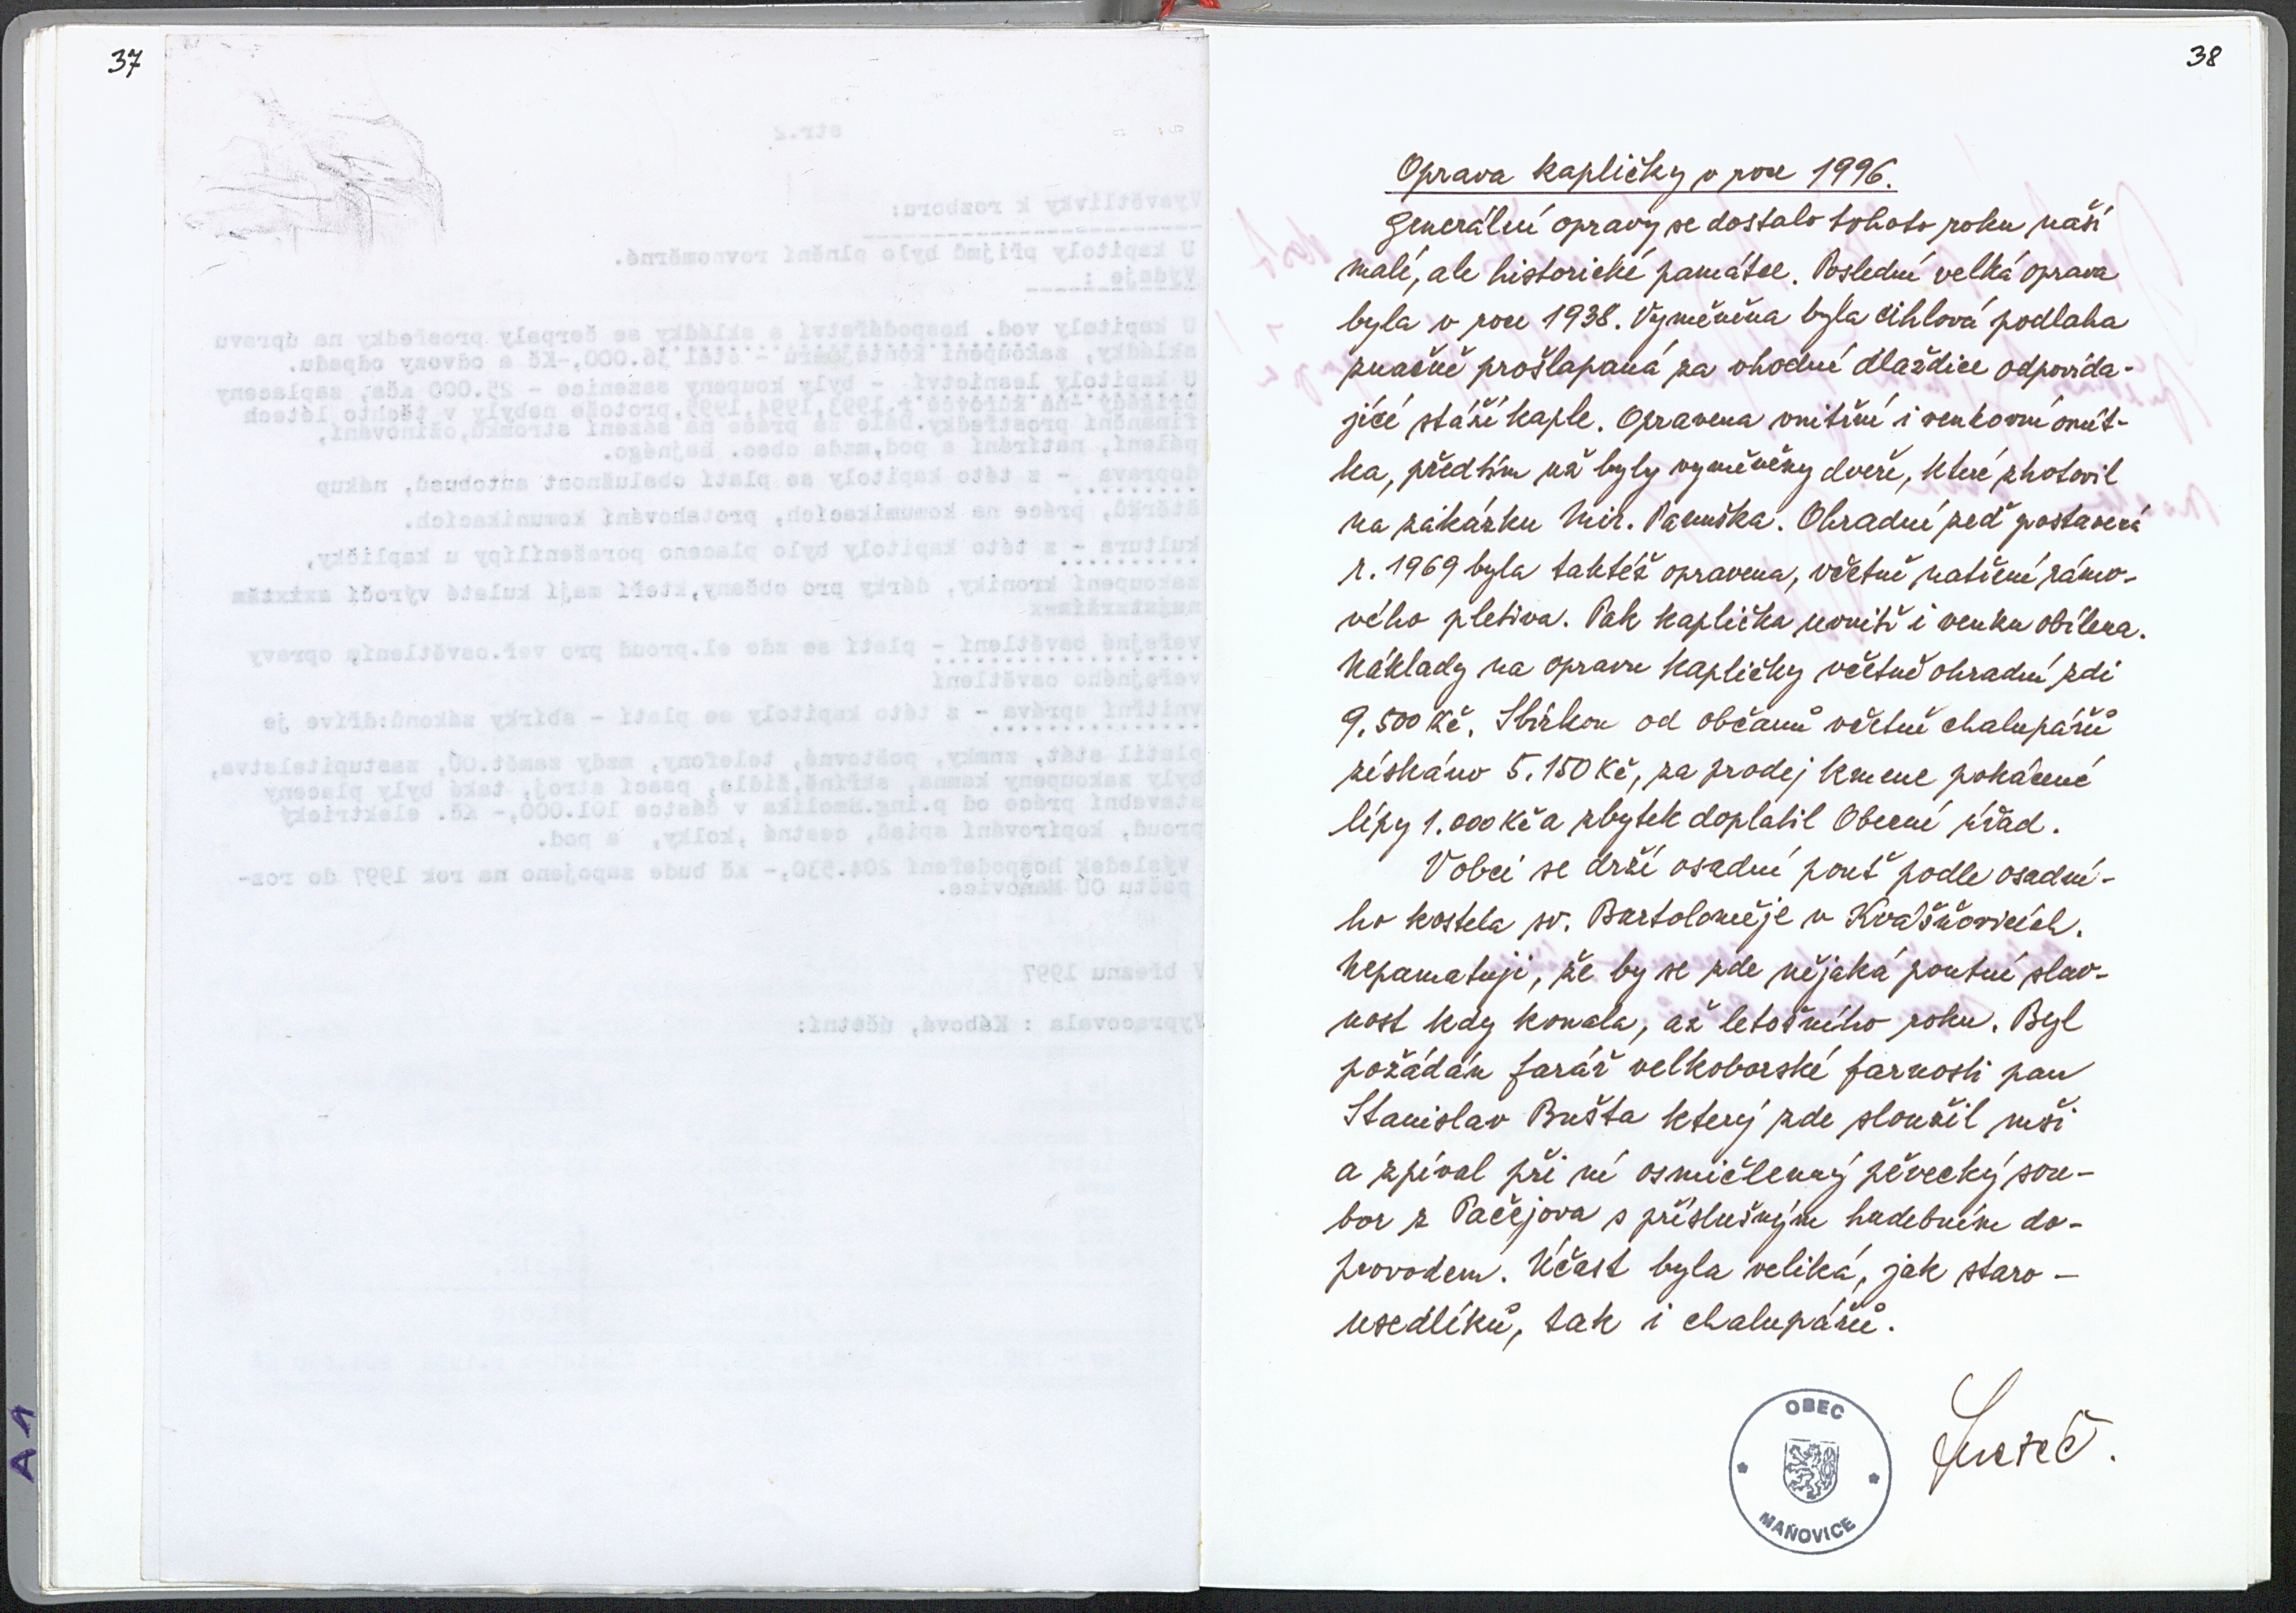 37
38
Oprava kapličky v roce 1996.
Generální opravy se dostalo tohoto roku naší
malé, ale historické památce. Poslední velká oprava
byla v roce 1938. Vyměněna byla cihlová podlaha
značně prošlapaná za vhodné dlaždice odpovída-
jící stáří kaple. Opravena vnitřní i venkovní omít-
ka, předtím už byly vyměněny dveře, které zhotovil
na zakázku Mir. Panuška. Ohradní zeď postavená
r. 1969 byla taktéž opravena, včetně natření rámo-
vého pletiva. Pak kaplička uvnitř i venku obílena.
Náklady na opravu kapličky včetně ohradní zdi
9.500 Kč. Sbírkou od občanů včetně chalupářů
získáno 5.150 Kč, za prodej kmene pokácené
lípy 1.000 Kč a zbytek doplatil Obecní úřad.
V obci se drží osadní pouť podle osadní-
ho kostela sv. Bartoloměje v Kvášňovicích.
Nepamatuji, že by se zde nějaká poutní slav-
nost kdy konala, až letošního roku. Byl
požádán farář velkoborské farnosti pan
Stanislav Bušta který zde sloužil mši
a zpíval při ní osmičlenný pěvecký sou-
bor z Pačejova s příslušným hudebním do-
provodem. Účast byla veliká, jak staro-
usedlíků, tak i chalupářů.
OBEC
MAŇOVICE
A1
str.2
Vysvětlivky k rozboru:
U kapitoly příjmů bylo plnění rovnoměrné.
Výdaje :
U kapitoly vod. hospodářství a skládky se čerpaly prostředky na úpravu
skládky, zakoupení kontejnerů - stál 36.000,-Kč a odvozy odpadu.
U kapitoly lesnictví - byly koupeny sazenice - 25.000 Kčs, zaplaceny
finanční prostředky. Dále za práce na sázení stromků, ožínování,
pálení, natírání a pod, mzda obec. hajného.
doprava - z této kapitoly se platí obslužnost autobusů, nákup
štěrků, práce na komunikacích, protahování komunikacích.
kultura - z této kapitoly bylo placeno poraženílípy u kapličky,
zakoupení kroniky, dárky pro občany, kteří mají kulaté výročí
veřejné osvětlení - platí se zde el.proud pro veř.osvětlení, opravy
veřejného osvětlení
vnitřní správa - z této kapitoly se platí - sbírky zákonů:dříve je
platil stát, známky, poštovné, telefony, mzdy zaměst.OÚ, zastupitelstva,
byly zakoupeny kamna, skříně, židle, psací stroj, také byly placeny
stavební práce od p.ing.Smolíka v částce 101.000,- Kč. elektrický
proud, kopírování spisů, cestné, kolky, a pod.
Výsledek hospodaření 204.530,- Kč bude zapojeno na rok 1997 do roz-
počtu OÚ Maňovice.
V březnu 1997
Vypracovala : Kábová, účetní: